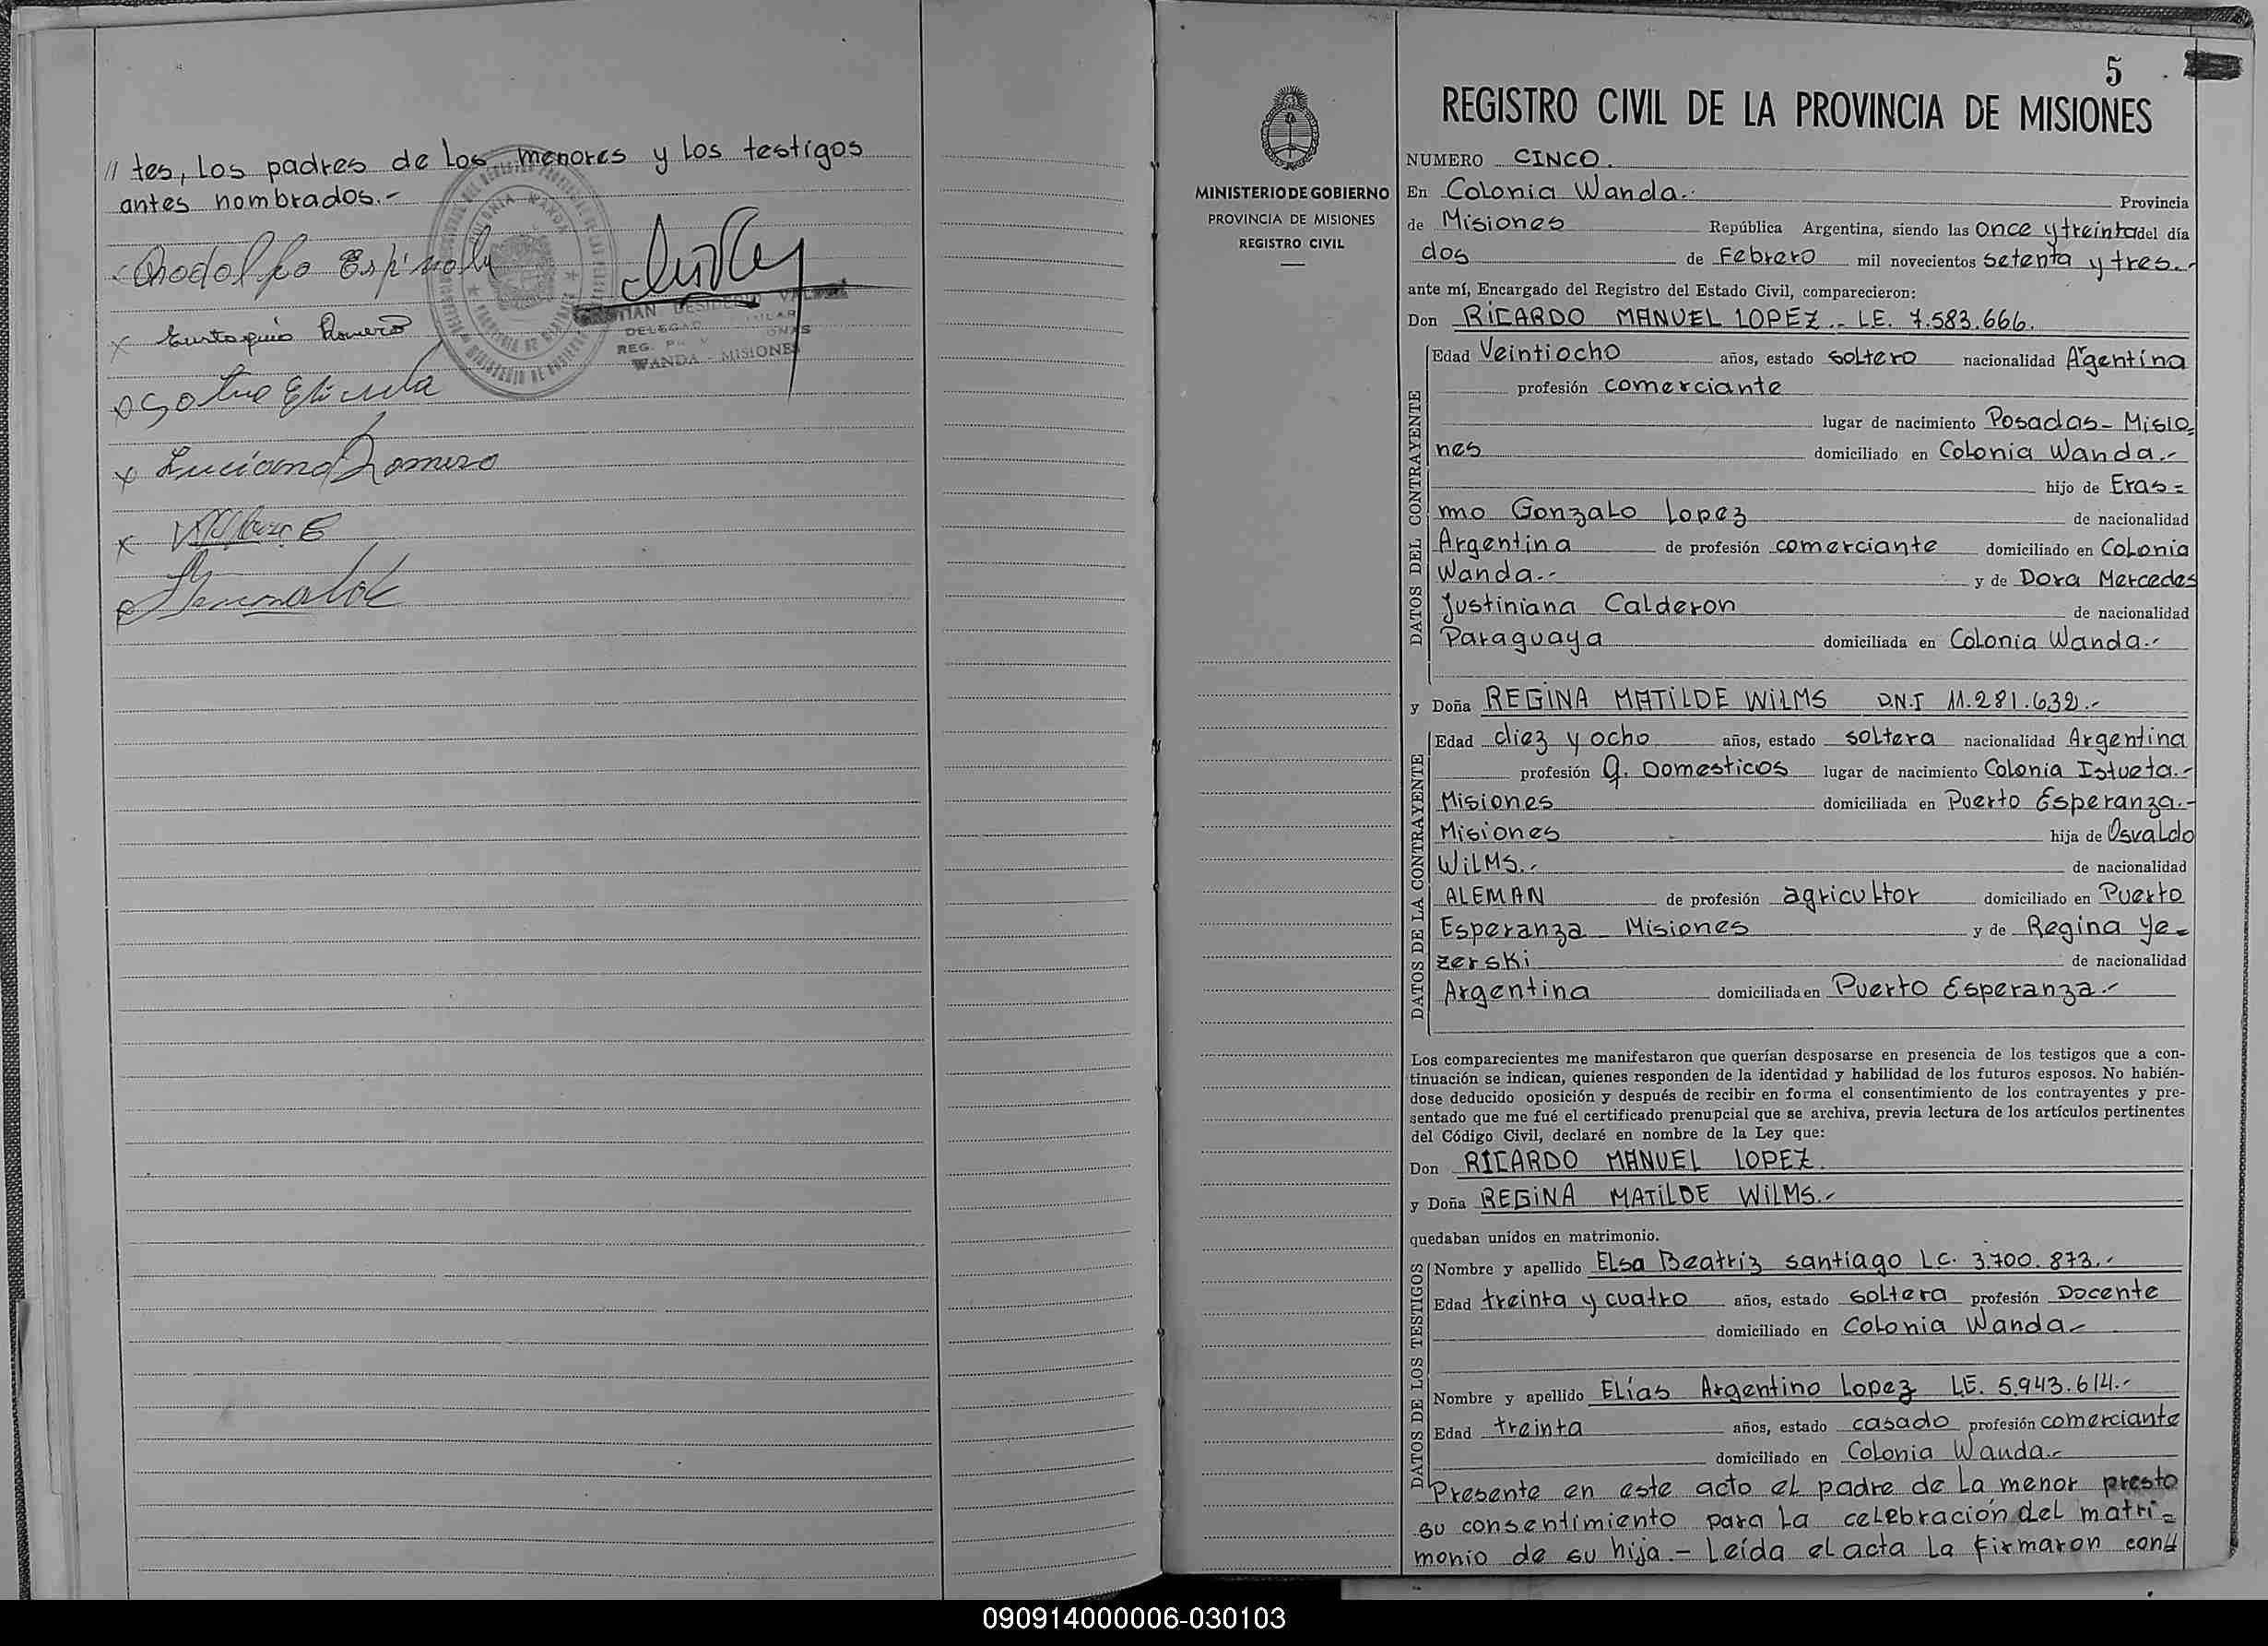 // tes, los padres de los menores y los testigos
antes nombrados.-
Rodolfo Espinola
x Eustaquio Romero
x Luciano Romero
x
WANDA - MISIONES
5
REGISTRO CIVIL DE LA PROVINCIA DE MISIONES
MINISTERIO DE GOBIERNO
PROVINCIA DE MISIONES
REGISTRO CIVIL
NUMERO CINCO.
En Colonia Wanda.- Provincia
de Misiones República Argentina, siendo las once y treinta del día
dos de Febrero mil novecientos setenta y tres.-
ante mí, Encargado del Registro del Estado Civil, comparecieron:
Don RICARDO MANUEL LOPEZ.- LE. 7.583.666.
DATOS DEL CONTRAYENTE
Edad Veintiocho años, estado soltero nacionalidad Argentina
profesión comerciante
lugar de nacimiento Posadas - Misio=
nes domiciliado en Colonia Wanda.-
hijo de Eras=
mo Gonzalo Lopez de nacionalidad
Argentina de profesión comerciante domiciliado en Colonia
Wanda.- y de Dora Mercedes
Justiniana Calderon de nacionalidad
Paraguaya domiciliada en Colonia Wanda.-
y Doña REGINA MATILDE WILMS D.N.I 11.281.632.-
DATOS DE LA CONTRAYENTE
Edad diez y ocho años, estado soltera nacionalidad Argentina
profesión Q. Domesticos lugar de nacimiento Colonia Istueta.-
Misiones domiciliada en Puerto Esperanza.-
Misiones hija de Osvaldo
WILMS.- de nacionalidad
ALEMAN de profesión agricultor domiciliado en Puerto
Esperanza Misiones y de Regina Ye=
zerski de nacionalidad
Argentina domiciliada en Puerto Esperanza.-
Los comparecientes me manifestaron que querían desposarse en presencia de los testigos que a con-
tinuación se indican, quienes responden de la identidad y habilidad de los futuros esposos. No habién-
dose deducido oposición y después de recibir en forma el consentimiento de los contrayentes y pre-
sentado que me fué el certificado prenupcial que se archiva, previa lectura de los artículos pertinentes
del Código Civil, declaré en nombre de la Ley que:
Don RICARDO MANUEL LOPEZ.
y Doña REGINA MATILDE WILMS.-
quedaban unidos en matrimonio.
DATOS DE LOS TESTIGOS
Nombre y apellido Elsa Beatriz Santiago LC. 3.700.873.-
Edad treinta y cuatro años, estado soltera profesión Docente
domiciliado en Colonia Wanda-
Nombre y apellido Elías Argentino Lopez LE. 5.943.614.-
Edad treinta años, estado casado profesión comerciante
domiciliado en Colonia Wanda.-
Presente en este acto el padre de la menor presto
su consentimiento para la celebración del matri=
monio de su hija.- Leída el acta la firmaron con//
090914000006-030103